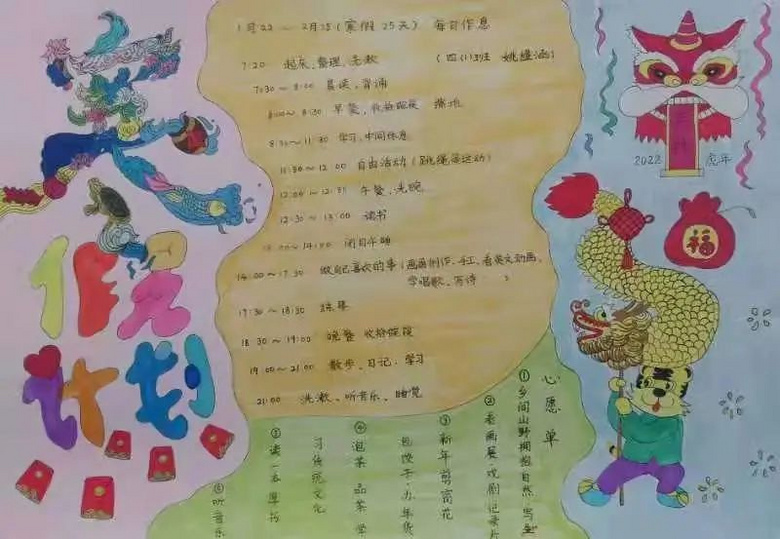 寒假计划
1月22～2月15(寒假25天) 每日作息
(四(1)班 姚

7:20 起床、整理、洗漱
7:30～8:00 晨读、背诵
8:00～8:30 早餐、收拾碗筷 擦地
8:30～11:30 学习、中间休息
11:30～12:00 自由活动(跳绳等运动)
12:00～12:30 午餐、洗碗
12:30～13:00 读书
13:00～14:00 闭目午睡
14:00～17:30 做自己喜欢的事(画画制作、手工、看英文动画、
学唱歌、写诗
17:30～18:30 练琴
18:30～19:00 晚餐 收拾碗筷
19:00～21:00 散步、日记、学习
21:00 洗漱、听音乐、睡觉
2022 虎年
福
心愿单
①乡间山野拥抱自然 写生
②看画展·戏剧·纪录片
③新年剪窗花
包饺子·办年货
④泡茶 品茶 学
习传统文化
⑤读一本厚书
⑥听音乐